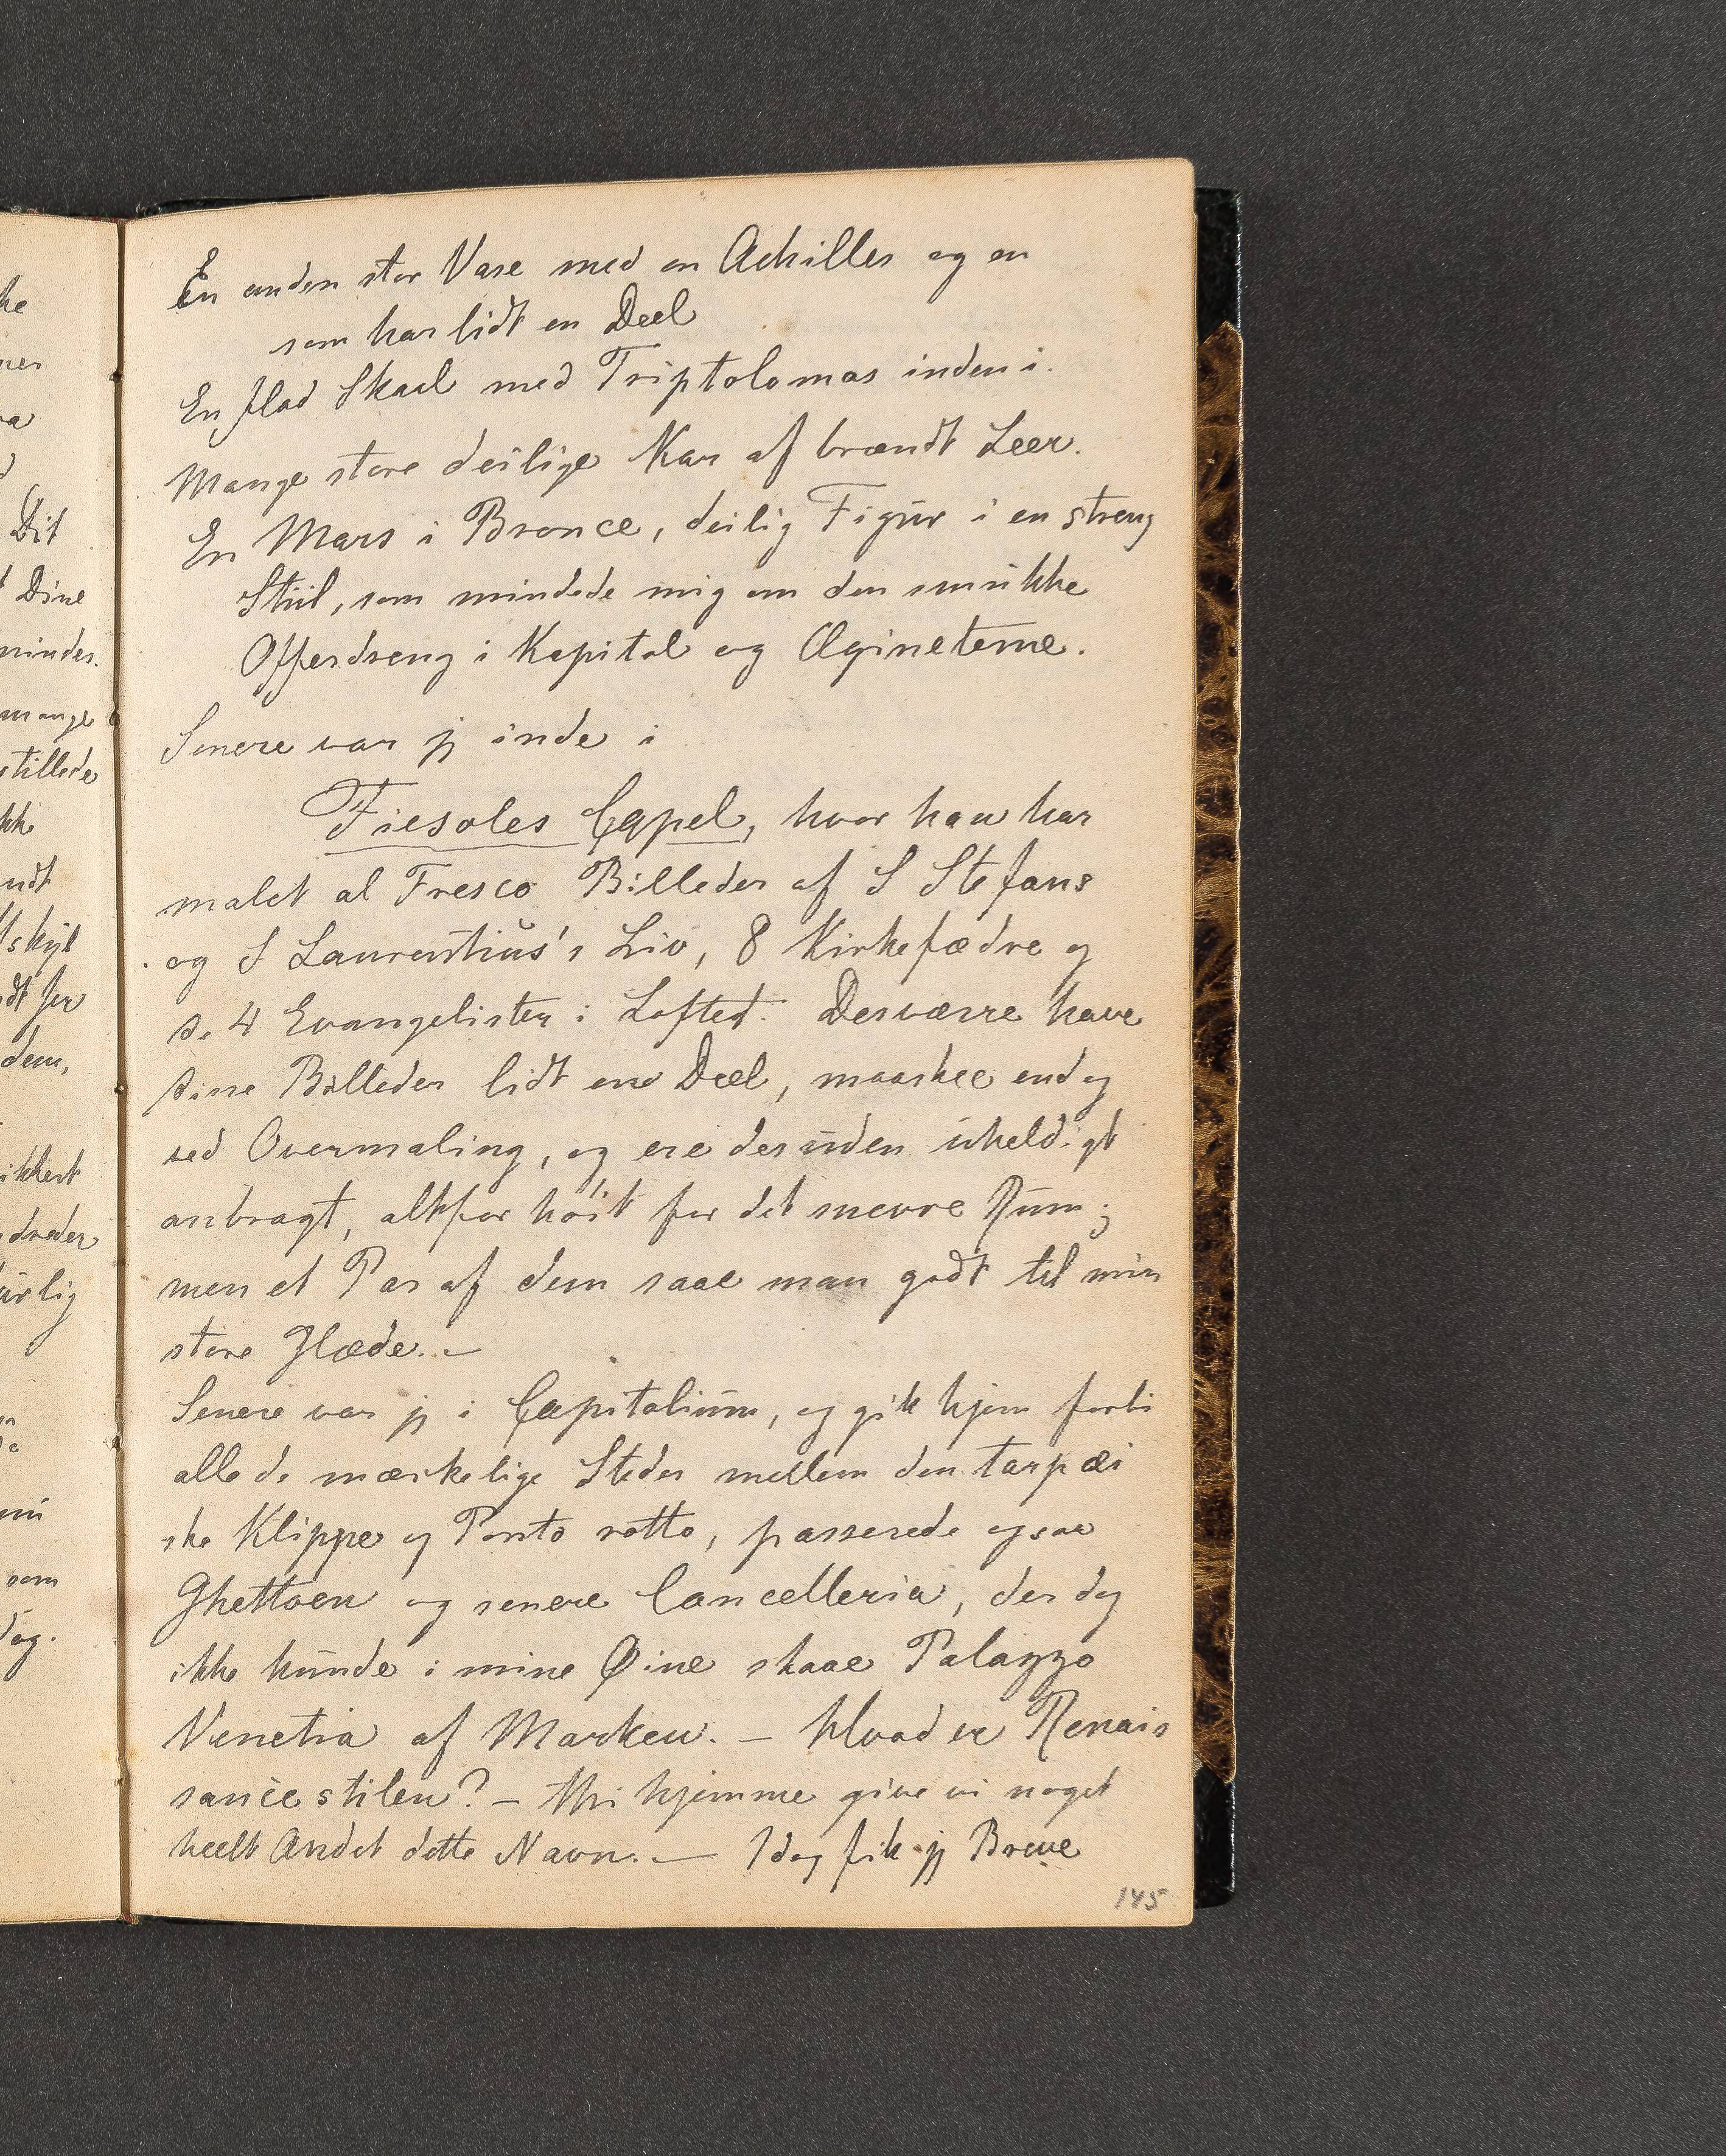 En anden stor Vase med en Achilles og en
som har lidt en Deel
En flad Skaal med Triptolomas inden i.
Mange store deilige Kar af brændt Leer.
En Mars i Bronce, deilig Figur i en streng
Stiil, som mindede mig om den smukke
Offerdreng i Kapitol og Ægineterne.
Senere var jg inde i
Fiesoles Capel, hvor han har
malet al Fresco Billeder af S Stefans
og S Laurentius's Liv, 8 Kirkefædre og
de 4 Evangelister i Loftet. Desværre have
disse Billeder lidt en Deel, maaskee endog
ved Overmaling, og ere desuden uheldigt
anbragt, altfor høit for det snevre Rum;
men et Par af dem saae man godt til min
store Glæde. –
Senere var jg i Capitolium, og gik hjem forbi
alle de mærkelige Steder mellem den tarpæi
ske Klippe og Ponto rotto, passerede ogsaa
Ghettoen og senere Cancelleria, der dog
ikke kunde i mine Øine slaae Palazzo
Venetia af Marken. – Hvad er Renais
sance stilen? – Thi hjemme give vi noget
heelt Andet dette Navn. – Idag fik jg Breve
145
he
ner
Dit
Dine
mindes.
mange
stillede
kke
ndt
dt for
dem,
ikkert
som
dag.